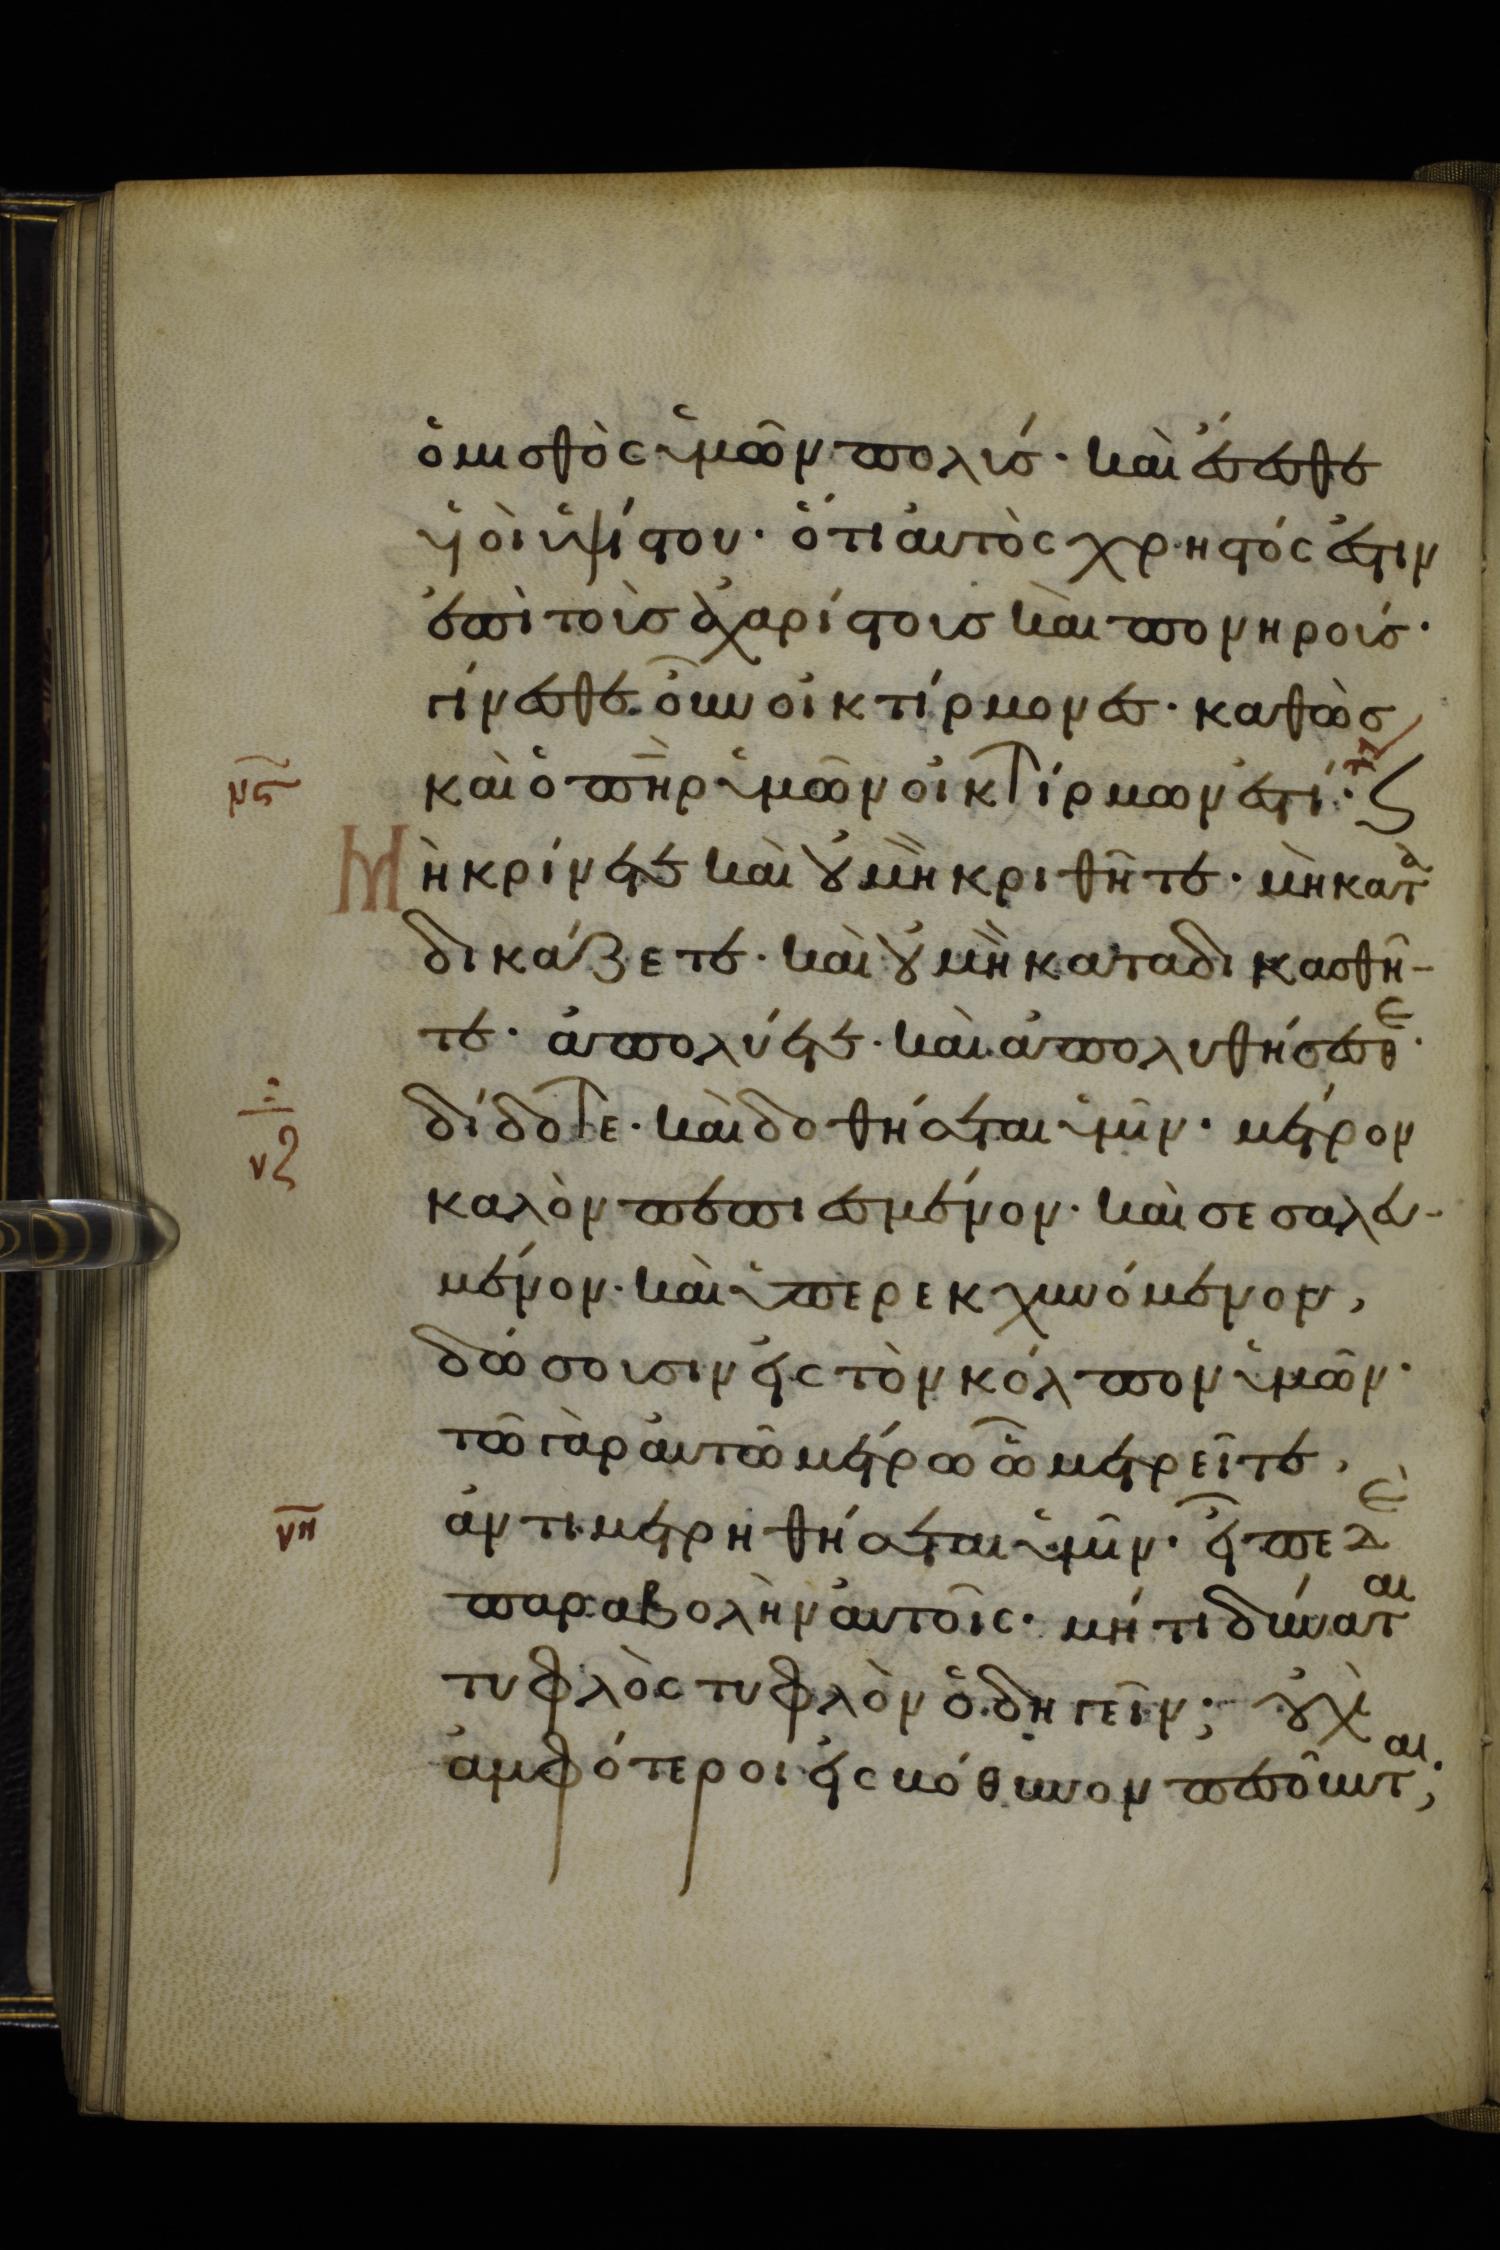 ὁ μισθὸς ὑμῶν πολύσ· καὶ ἔσεσθε
υἱοὶ ὑψίστου· ὅτι αὐτὸς χρηστός ἐστιν
ἐπὶ τοὺσ ἀχαρίστουσ καὶ πονηρούσ·
γίνεσθε οὖν οἰκτίρμονεσ· καθὼσ
νϛ καὶ ὁ πηρ ὑμῶν οἰκτίρμων ἐστί·
Μὴ κρίνετε καὶ οὐ μὴ κριθῆτε· μὴ κατα
δικάζετε· καὶ οὐ μὴ καταδικασθῆ-
τε· ἀπολύετε· καὶ ἀπολυθήσεσθε·
δίδοτε· καὶ δοθήσεται ὑμῖν· μέτρον
νζ
καλὸν πεπιεσμένον· καὶ σεσαλευ-
μένον· καὶ ὑπερεκχυνόμενον,
δώσουσιν εἰς τὸν κόλπον ὑμῶν·
τῶ γὰρ αὐτῶ μέτρω ὧ μετρεῖτε,
νη ἀντιμετρηθήσεται ὑμῖν· εἶπε δὲ
παραβολὴν αὐτοῖς· μήτι δύναται
τυφλὸς τυφλὸν ὁδηγεῖν; οὐχὶ
ἀμφότεροι εἰς βόθυνον πεσοῦνται;